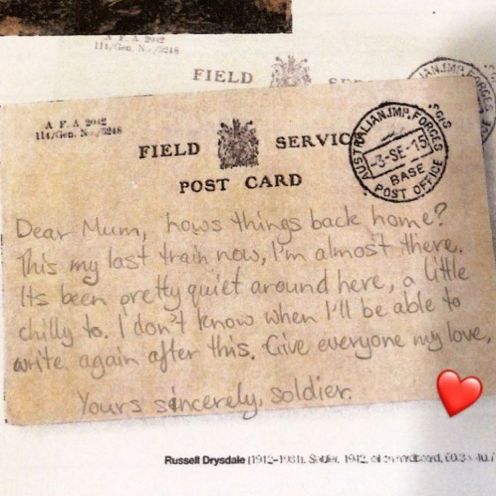 FIELD
A F A 2042
114/Gen. No/5248
FIELD SERVICE
POST CARD
AUSTRALIAN IMP. FORCES
3-SE-15
BASE
POST OFFICE
Dear Mum, hows things back home?
This my last train now, I'm almost there.
Its been pretty quiet around here, a little
chilly to. I don't know when I'll be able to
write again after this. Give everyone my love,
Yours sincerely, soldier.
Russell Drysdale (1912–1981). Soldier, 1942, oil on hardboard,